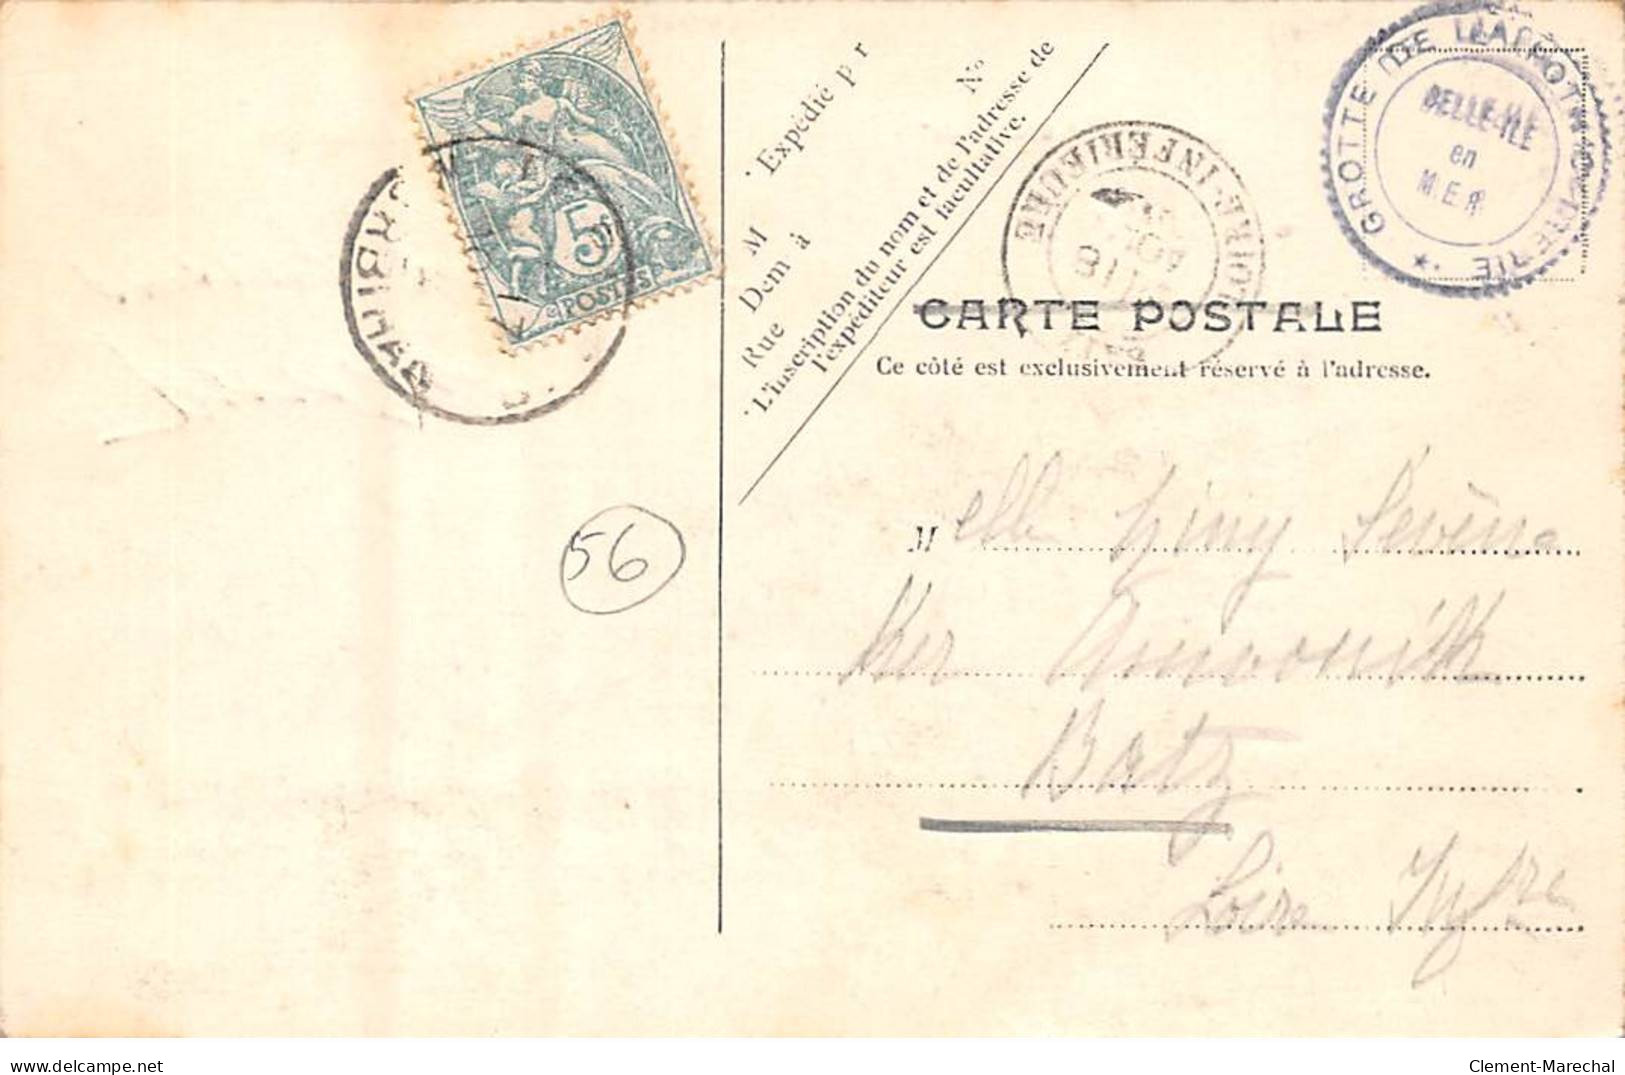 5c
POSTES
MORBIHAN
Expédié p r
M
Dem à
Rue
N°
L'inscription du nom et de l'adresse de
l'expéditeur est facultative.
LOIRE-INFÉRIEURE
GROTTE DE L'APOTHICAIRERIE
BELLE-ILE
en
MER
CARTE POSTALE
Ce côté est exclusivement réservé à l'adresse.
56
Melle
Ker
Batz
Loire Infre
www.delcampe.net
Clement-Marechal